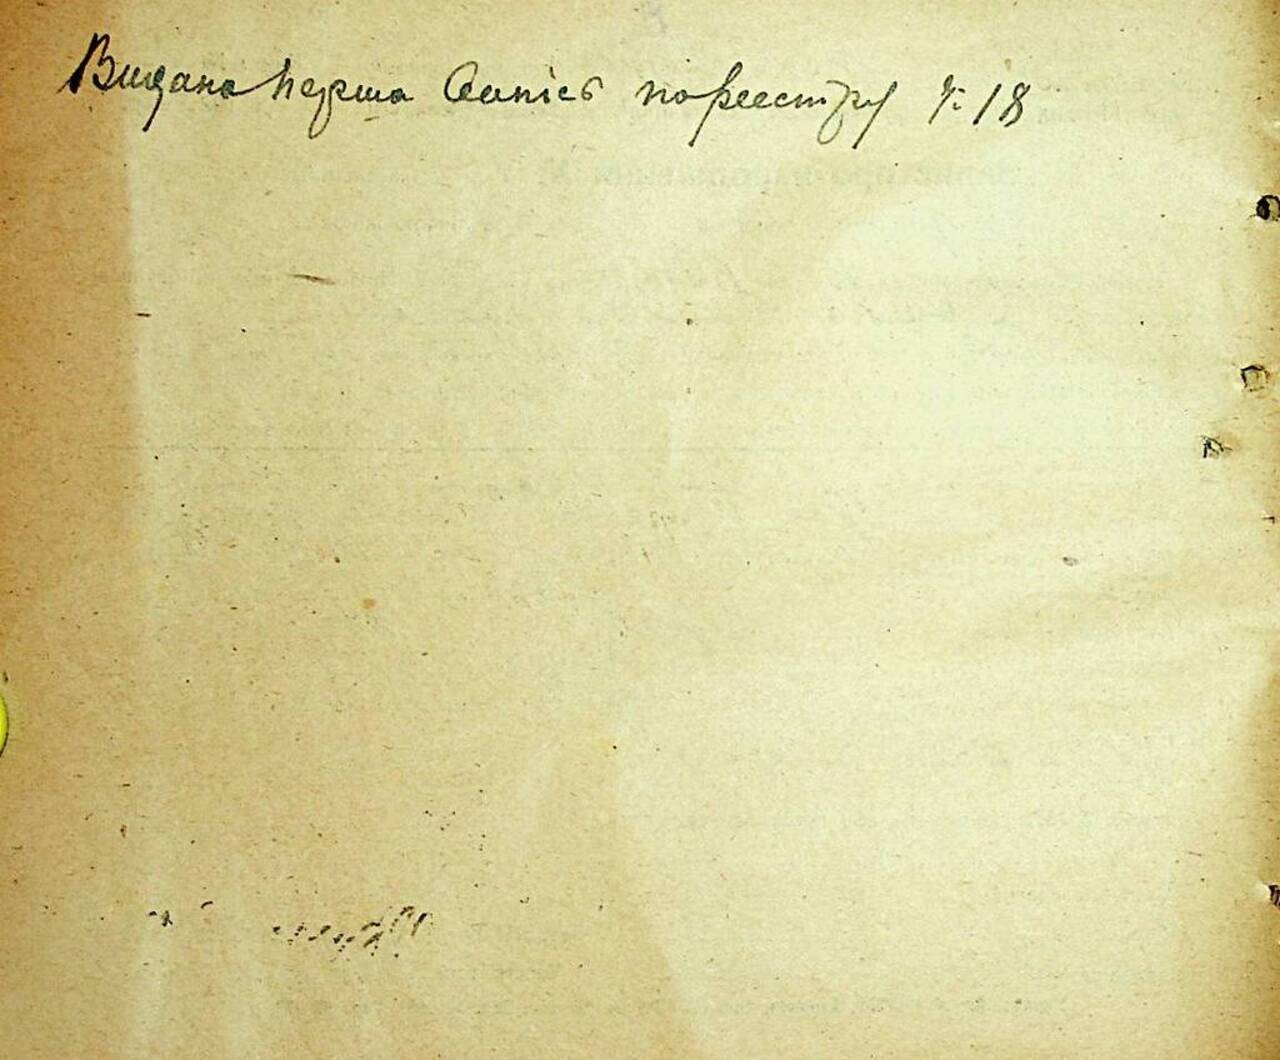 Видана перша випісь по реестру № 18